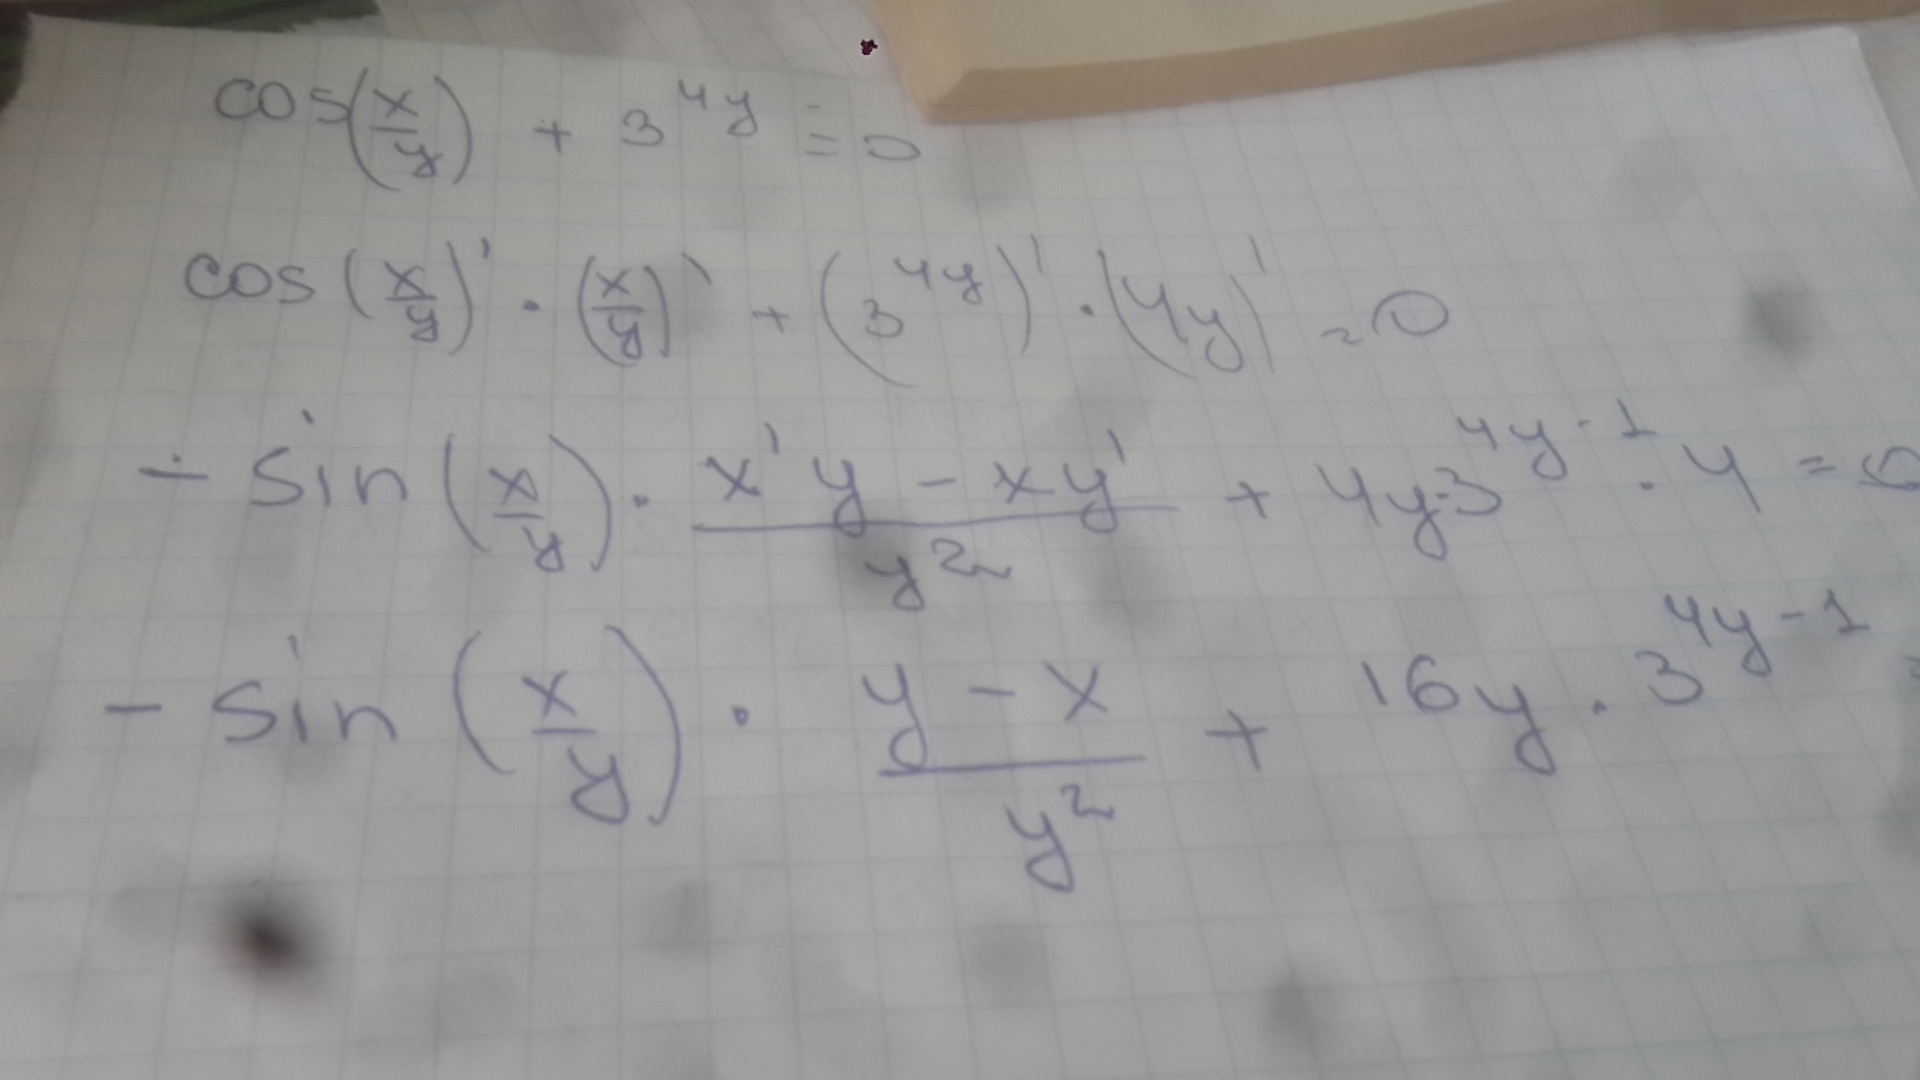 cos(x/y) + 3^4y = 0
cos(x/y)' · (x/y)' + (3^4y)' · (4y)' = 0
- sin(x/y) · x'y - xy'/y² + 4y·3^4y-1 · 4 = 0
- sin(x/y) · y - x/y² + 16y · 3^4y-1